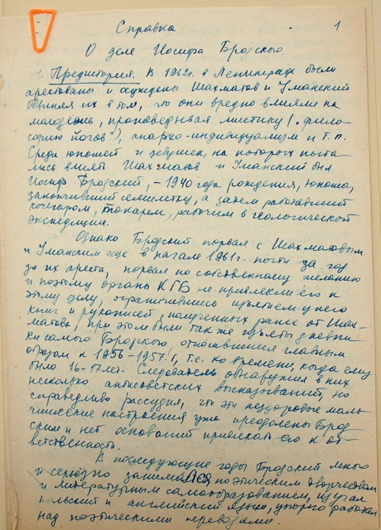 Справка 1
О деле Иосифа Бродского.
1. Предистория. В 1962 г. в Ленинграде были
арестованы и осуждены Шахматов и Уманский
обвиняя их в том, что они вредно влияли на
молодежь, проповедывая мистику ("фило-
софию йогов"), анархо-индивидуализм и т.п.
Среди юношей и девушек, на которых пыта-
лись влиять Шахматов и Уманский был
Иосиф Бродский, – 1940 года рождения, юноша,
закончивший семилетку, а затем работавший
кочегаром, токарем, рабочим в геологической
экспедиции.
Однако Бродский порвал с Шахматовым
и Уманским еще в начале 1961 г. почти за год
до их ареста, порвал по собственному желанию
и поэтому органы КГБ не привлекли его к
этому делу, ограничившись изъятием у него
книг и рукописей, полученных ранее от Шах-
матова, при этом были так же изъяты дневни-
ки самого Бродского, относившиеся главным
образом к 1956-1957 г., т.е. ко времени, когда ему
было 16-17 лет. Следователь обнаружил в них
несколько антисоветских высказываний, но
справедливо рассудил, что эти нездоровые маль-
чишеские настроения уже преодолены Брод-
ским и нет оснований привлекать его к от-
ветственность.
В последующие годы Бродский много
и серьезно занимался поэтическим творчеством
и литературным самообразованием, изучал
польский и английский языки, упорно работал
над поэтическими переводами.